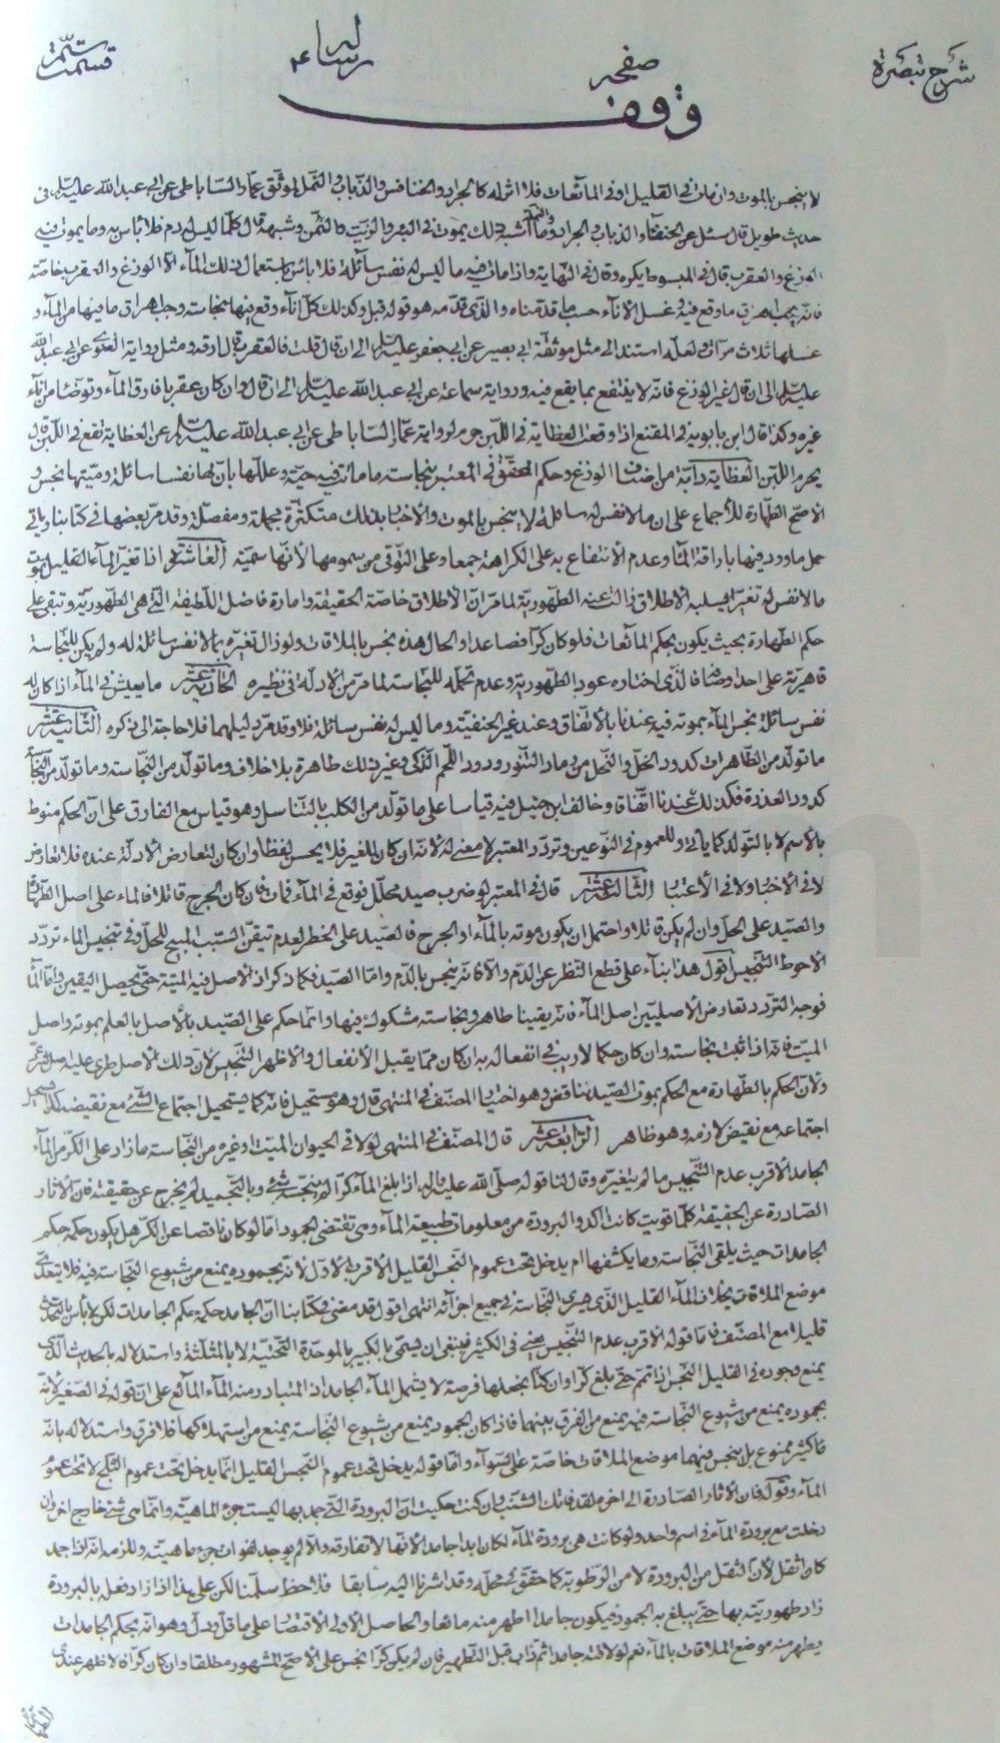 شرح تبصرة
صفحه
رساله
قسمت
وقف
لا ينجس بالموت وان مات في القليل او في المائعات فلا اثر له كالجراد والخنافس والذباب والنمل لموثق عمار الساباطي عن ابي عبد الله عليه السلام في
حديث طويل قال سئل عن الخنفساء والذباب والجراد والنملة وما اشبه ذلك يموت في البئر والزيت والسمن وشبهه قال كلما ليس له دم فلا بأس به وما يموت فيه
الوزغ والعقرب قال في المبسوط يكره وقال في النهاية واذا مات فيه ما ليس له نفس سائلة فلا بأس باستعمال ذلك الماء الا الوزغ والعقرب خاصة
فانه يجب اهراق ما وقع فيه وغسل الاناء حسب ما قدمناه والذي قدمه هو قوله قبل وكذلك كل اناء وقع فيها نجاسة وجب اهراق ما فيها من الماء و
غسلها ثلاث مرات لعله استند الى مثل موثقة ابي بصير عن ابي جعفر عليه السلام الى ان قال قلت فالعقرب قال ارقه ومثل رواية الغنوي عن ابي عبد الله
عليه السلام الى ان قال غير الوزغ فانه لا ينتفع بما يقع فيه ورواية سماعة عن ابي عبد الله عليه السلام الى ان قال وان كان عقربا فارق الماء وتوضأ من اناء
غيره وكذا قال ابن بابويه في المقنع اذا وقعت العظاية في اللبن حرم لرواية عمار الساباطي عن ابي عبد الله عليه السلام عن العظاية تقع في اللبن قال
يحرم اللبن العظاية دابة من اصناف الوزغ وحكم المحقق في المعتبر بنجاسة ما ماتت فيه حية وعللها بان لها نفسا سائلة وميتها نجس و
الاصح الطهارة للاجماع على ان ما لا نفس له سائلة لا ينجس بالموت والاخبار بذلك متكثرة مجملة ومفصلة وقد مر بعضها في كتابنا وياتي
حمل ما ورد فيها باراقة الماء وعدم الانتفاع به على الكراهة جمعا وعلى التوقي من سمومها لانها سمية العاشر اذا تغير الماء القليل بموت
ما لا نفس له تغيرا يسلبه الاطلاق زالت عنه الطهورية لما مر ان الاطلاق خاصة الحقيقة وامارة فاضل اللطيفة التي هي الطهورية وتبقى على
حكم الطهارة بحيث يكون بحكم المائعات فلو كان كرا فصاعدا والحال هذه نجس بالملاقات ولو زال تغيره بما لا نفس سائلة له ولم يكن للنجاسة
قاهرية على احد اوصافه فالذي اختاره عود الطهورية وعدم تحمله للنجاسة لما مر من الادلة في نظيره الحادية عشر ما يعيش في الماء اذا كان له
نفس سائلة نجس الماء بموته فيه عندنا بالاتفاق وعند غير الحنفية وما ليس له نفس سائلة فلا وقد مر دليلهما فلا حاجة الى ذكره الثانية عشر
ما تولد من الطاهرات كدود الخل والنحل من رماد التنور ودود اللحم المذكى وغير ذلك طاهرة بلا خلاف وما تولد من النجاسة وما تولد من النجاسة
كدود العذرة فكذلك عندنا اتفاقا وخالف ابن حنبل فيه قياسا على ما تولد من الكلب بالتناسل وهو قياس مع الفارق على ان الحكم منوط
بالاسم لا بالتولد كما ياتي وللعموم في النوعين وتردد المعتبر لا معنى له لانه ان كان للغير فلا يحسن لفظا وان كان لتعارض الادلة عنده فلا تعارض
لا في الاخبار ولا في الاعتبار الثالثة عشر قال في المعتبر لو ضرب صيد محلل فوقع في الماء فمات فان كان الجرح قاتلا فالماء على اصل الطهارة
والصيد على الحل وان لم يكن قاتلا واحتمل ان يكون موته بالماء او الجرح فالصيد على الحظر لعدم تيقن السبب المبيح للحل وفي تنجيس الماء تردد
الاحوط التنجيس اقول هذا بناء على قطع النظر عن الدم والا فانه ينجس بالدم واما الصيد فكما ذكر اذ الاصل فيه الميتة حتى يحصل اليقين واما الماء
فوجه التردد تعارض الاصليين اصل الماء فانه يقينا طاهر ونجاسته مشكوك فيها وانما حكم على الصيد بالاصل بالعلم بموته واصل
الميت فانه اذا ثبت نجاسته وان كان حكما لا ريب في انفعاله به ان كان مما يقبل الانفعال والاظهر التنجيس لان ذلك الاصل طرى عليه اصل
ولان الحكم بالطهارة مع الحكم بموت الصيد تناقض وهو اختيار المصنف في المنتهى قال وهو مستحيل فانه كما يستحيل اجتماع الشيء مع نقيضه كذا يستحيل
اجتماعه مع نقيض لازمه وهو ظاهر الرابعة عشر قال المصنف في المنتهى لو لاقى الحيوان الميت او غيره من النجاسة ما زاد على الكر من الماء
الجامد الاقرب عدم التنجيس ما لم يتغيره وقال لنا قوله صلى الله عليه وآله اذا بلغ الماء كرا لم ينجسه شيء وبالتجميد لم يخرج عن حقيقته فان الاثار
الصادرة عن الحقيقة كلما قويت كانت اكد والبرودة من معلومات طبيعة الماء وهي تقتضي الجمود اما لو كان ناقصا عن الكر هل يكون حكمه حكم
الجامدات حيث يلقى النجاسة وما يكشفها ام يدخل تحت عموم النجس القليل الاقرب الاول لانه بجموده يمنع من شيوع النجاسة فيه فلا يتعدى
موضع الملاقات بخلاف الماء القليل الذي يسري النجاسة في جميع اجزائه انتهى اقول قد مضى في كتابنا ان الجامد حكمه حكم الجامدات لكن لا بأس بالتحدث
قليلا مع المصنف فاما قوله الاقرب عدم التنجيس يعني في الكثير فينبغي ان يسمى بالكبير بالموحدة التحتية لا بالمثلثة واستدلاله بالحديث الذي
يمنع وجوده في القليل النجس اذا تمم حتى بلغ كرا وان كنا نجعلها فرصة لا يشمل الماء الجامد اذ المتبادر منه الماء المائع على ان قوله في الصغير لانه
بجموده يمنع من شيوع النجاسة فيه يمنع من الفرق بينهما فاذا كان الجمود يمنع من شيوع النجاسة يمنع من استهلاكها فلا فرق واستدلاله بانه
ماء كثير ممنوع بل ينجس فيهما موضع الملاقات خاصة على السواء واما قوله يدخل تحت عموم النجس القليل انما يدخل تحت عموم الثلج لا تحت عموم
الماء وقوله فان الاثار الصادرة الى اخره لقد فاتك الشنب وان كنت حكيت ان البرودة التي جمد بها ليست جزء الماهية وانما هي شيء خارج اخر وان
دخلت مع برودة الماء في اسم واحد ولو كانت هي برودة الماء لكان ابدا جامدا لانها لا تفارقه والا لم يوجد لفوات جزء ماهيته وللزم انه اذا جمد
كان اثقل لان الثقل من البرودة لا من الرطوبة كما حقق في محله وقد اشرنا اليه سابقا فلاحظ سلمنا لكن على هذا اذا زاد فعله بالبرودة
زاد طهوريته بها حتى يبلغ به الجمود فيكون جامدا اطهر منه مائعا والحاصل الاولى الاقتصار على ما قل ودل وهو انه بحكم الجامدات
يطهر منه موضع الملاقات بالماء نعم لو لاقته جامدا ثم ذاب قبل التطهير فان لم يكن كرا نجس على الاصح المشهور مطلقا وان كان كرا فالاظهر عندي